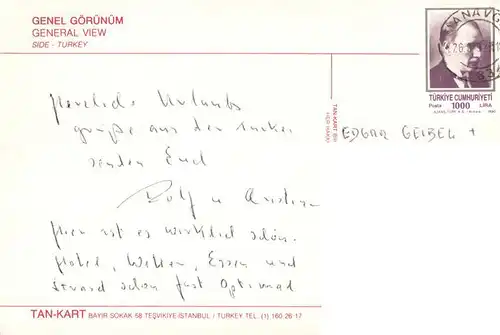 GENEL GÖRÜNÜM
GENERAL VIEW
SIDE - TURKEY
TÜRKİYE CUMHURİYETİ
Posta 1000 LİRA
Herzliche Urlaubs
grüße aus der Türkei
senden Euch
Rolf u
EDGAR GEIBEL +
TAN-KART
Hier ist es wirklich schön.
Hotel, Wetter, Essen und
Strand schon fast Optimal
TAN-KART BAYIR SOKAK 58 TEŞVİKİYE-İSTANBUL / TURKEY TEL. (1) 160 26 17